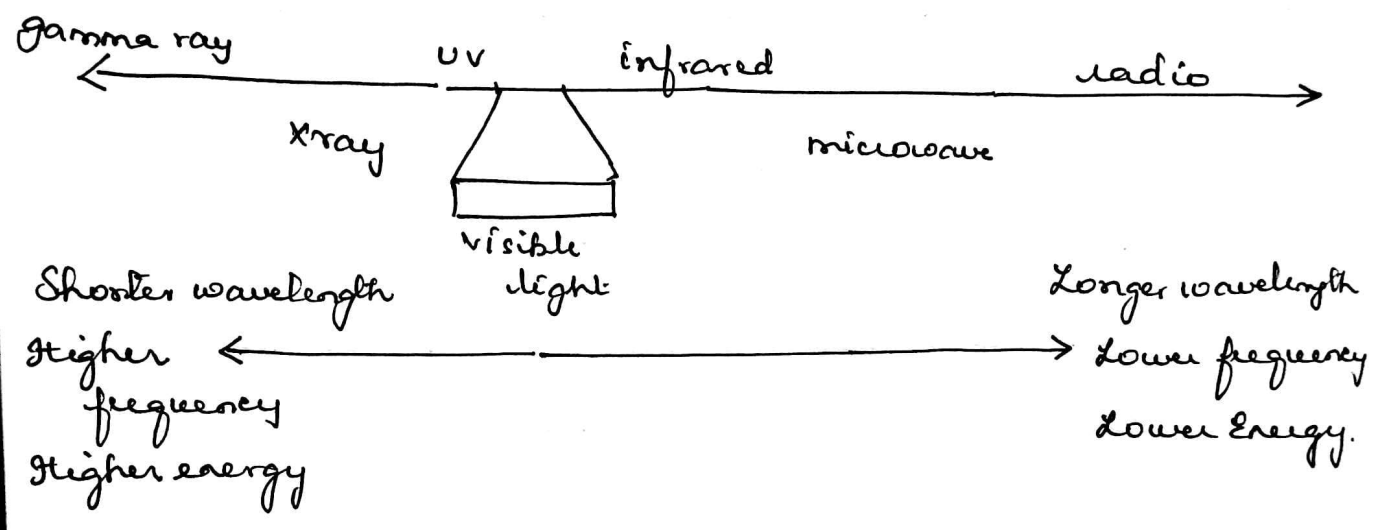 gamma ray
UV
infrared
radio
xray
microwave
visible
light
Shorter wavelength
Higher
frequency
Higher energy
Longer wavelength
Lower frequency
Lower Energy.